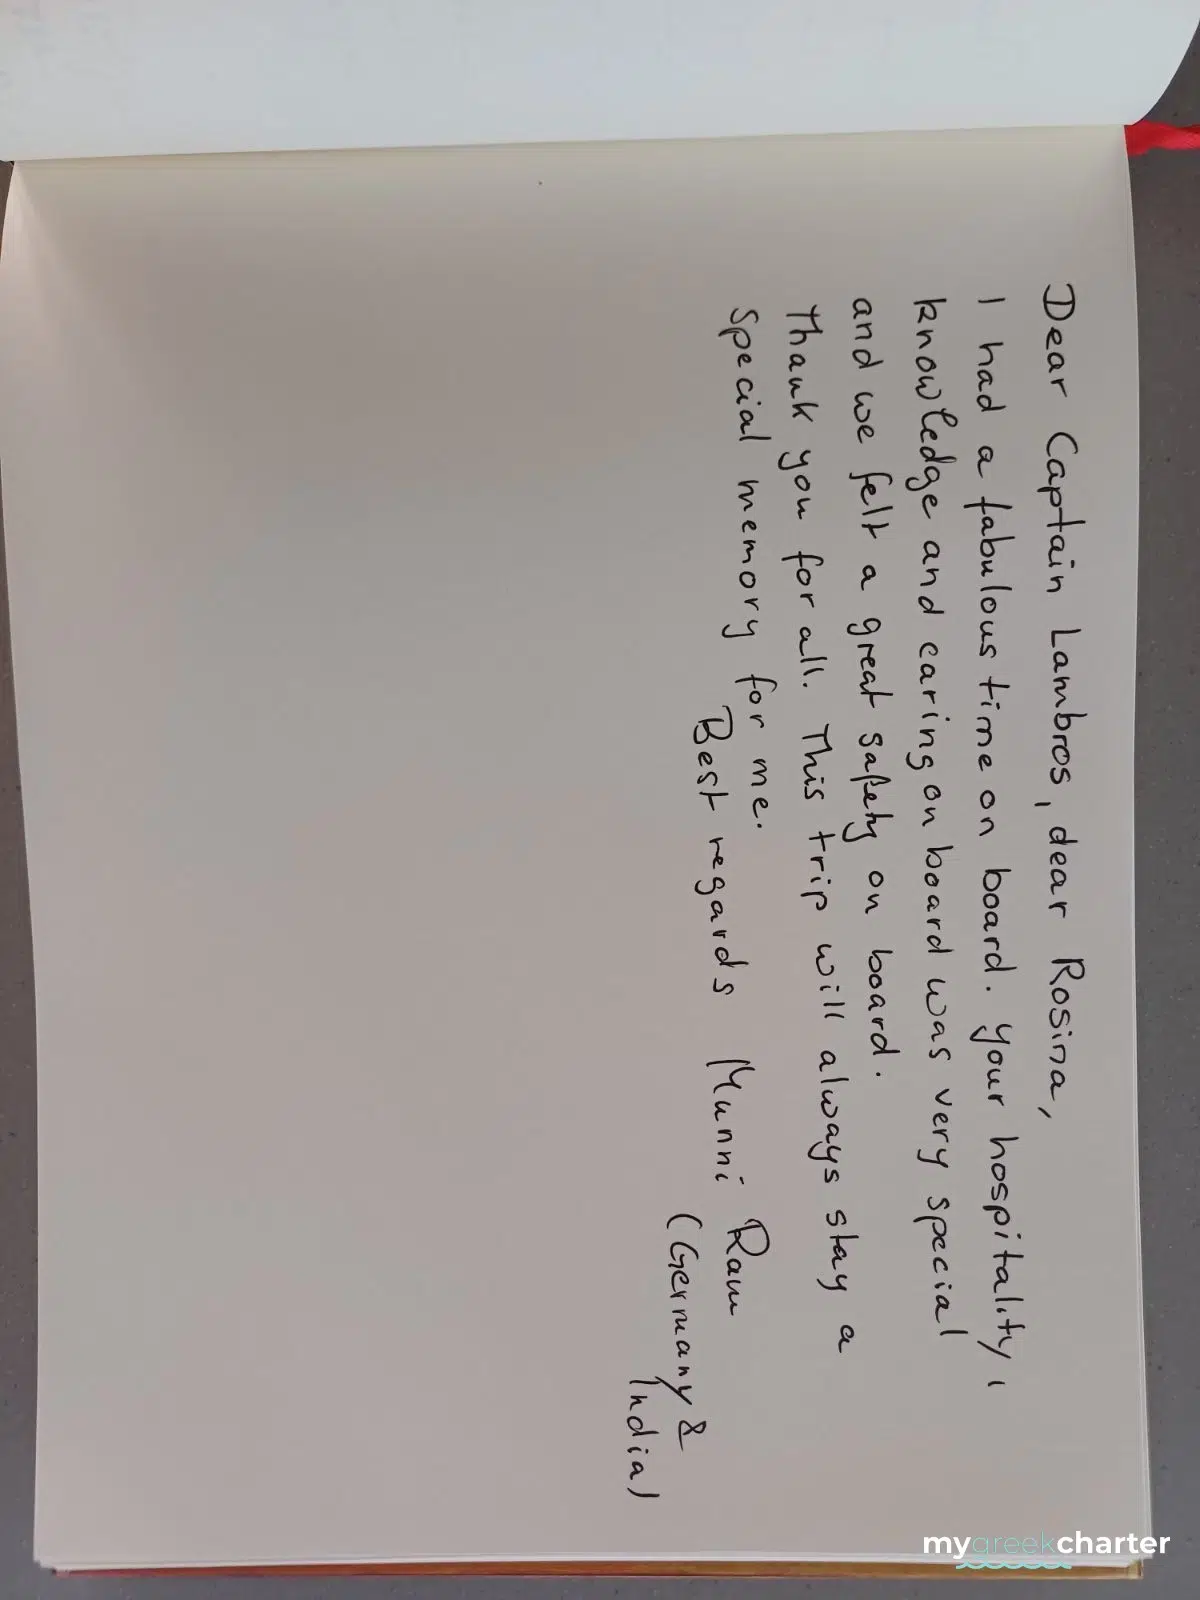 Dear Captain Lambros, dear Rosina,
I had a fabulous time on board. Your hospitality,
knowledge and caring on board was very special
and we felt a great safety on board.
Thank you for all. This trip will always stay a
special memory for me.
Best regards Munni Ram
(Germany &
India)
mygreekcharter